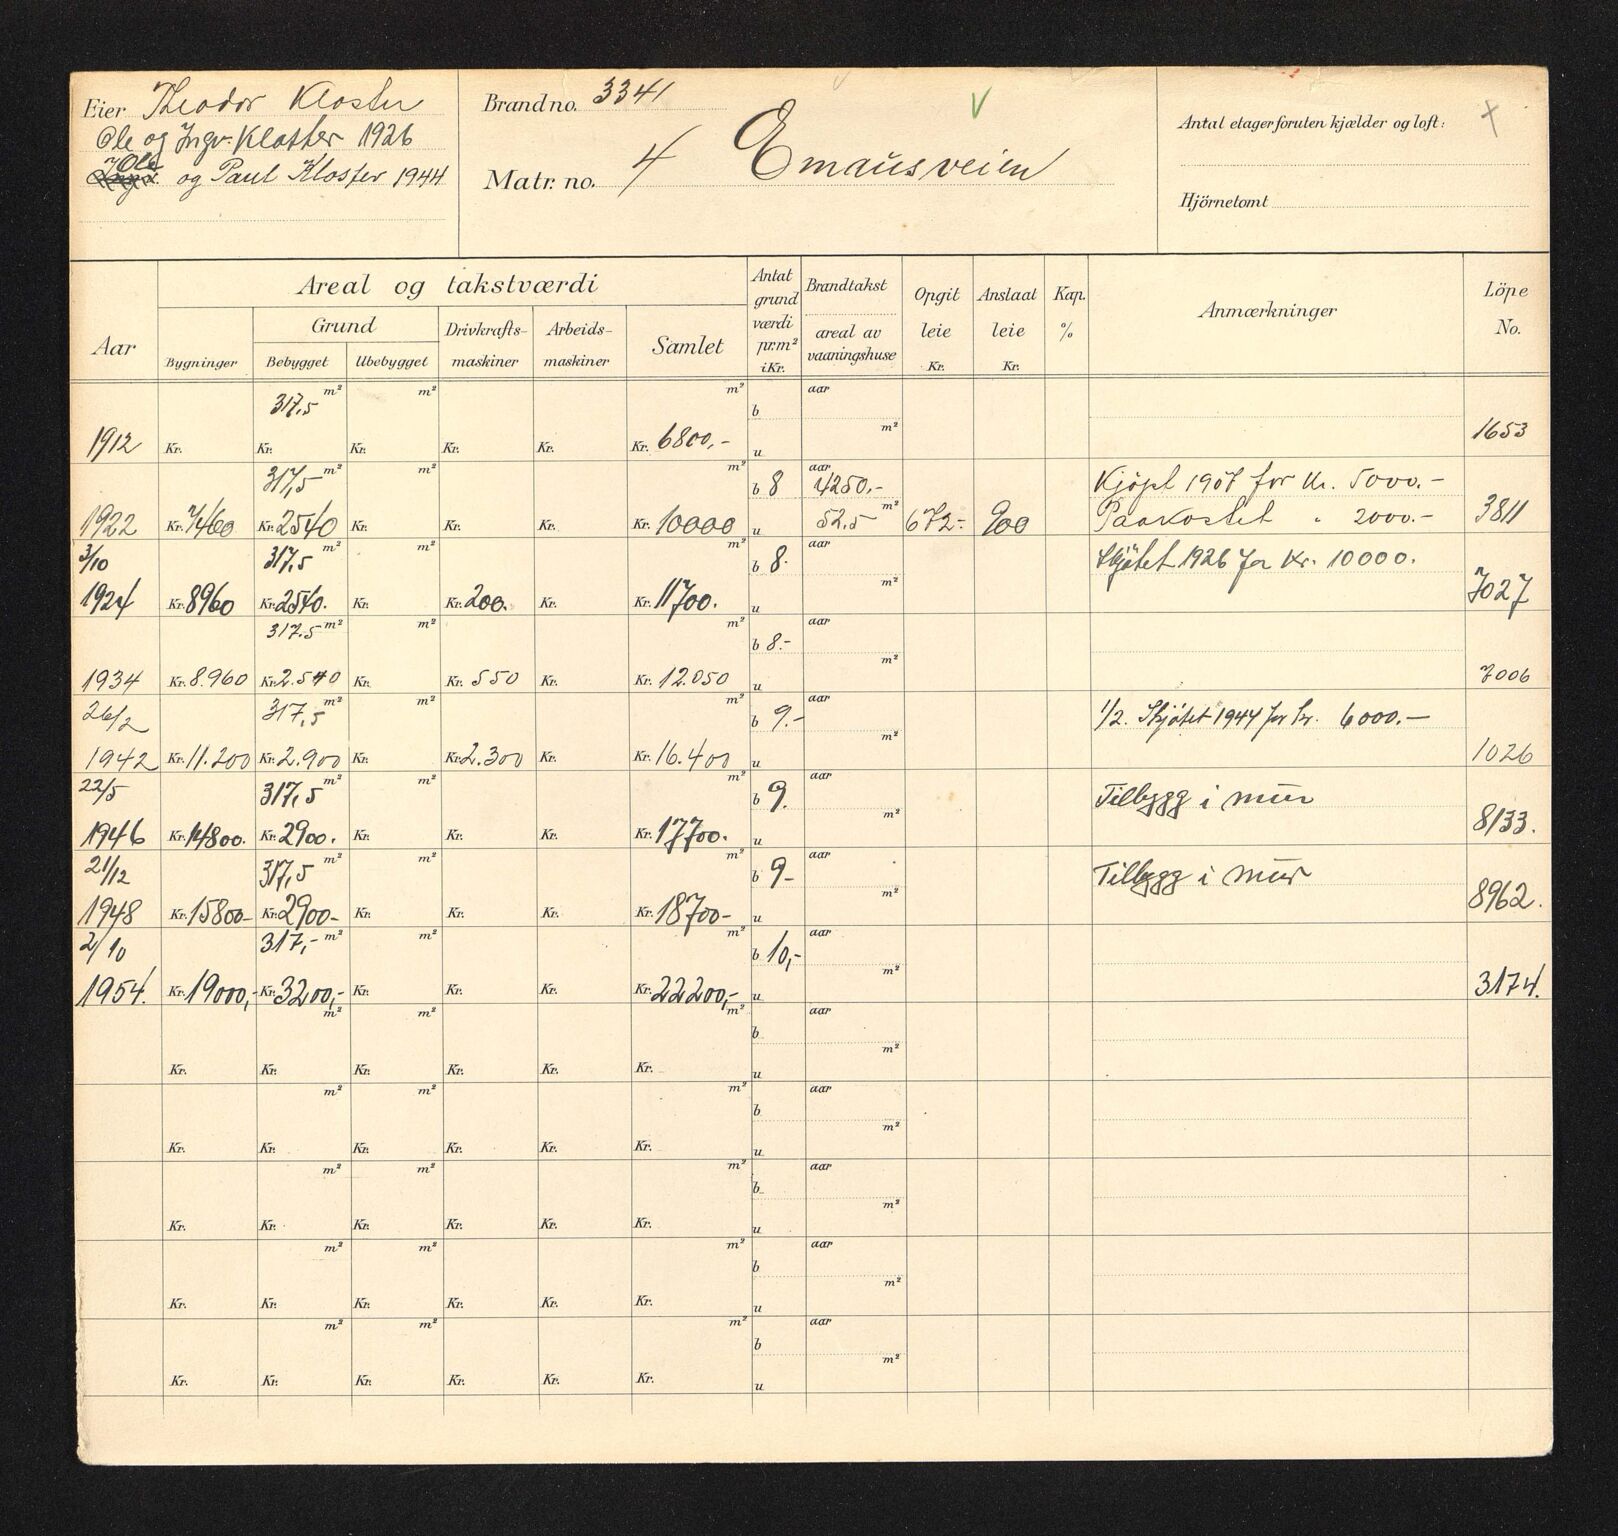 Eier Theodor Kloster
Ole og Ingv. Kloster 1926
Ole og Paul Kloster 1944
Brandno. 3341
Matr. no. 4 Emausveien
Antal etager foruten kjælder og loft:
Hjörnetomt
Aar
Areal og takstværdi
Bygninger
Grund
Bebygget Ubebygget
Drivkrafts-maskiner
Arbeids-maskiner
Samlet
Antat grund værdi pr.m² i Kr.
Brandtakst
areal av vaaningshuse
Opgit leie Kr.
Anslaat leie Kr.
Kap. %
Anmærkninger
Löpe No.
317,5 m² m² m² aar
b m²
1912 Kr. Kr. Kr. Kr. Kr. Kr. 6800,- u 1653
317,5 m² m² m² b 8 aar 4250,- Kjöpt 1907 for Kr. 5000.-
1922 Kr. 7460 Kr. 2540 Kr. Kr. Kr. Kr. 10000 u 52,5 m² 672.- 900 Paakostet " 2000.- 3811
3/10 317,5 m² m² m² b 8. aar Skjötet 1926 for Kr. 10000.
m²
1924 Kr. 8960 Kr. 2540. Kr. Kr. 200. Kr. Kr. 11700. u 7027
317.5 m² m² m² b 8.- aar
m²
1934 Kr. 8.960 Kr. 2.540 Kr. Kr. 550 Kr. Kr. 12.050 u 7006
26/2 317,5 m² m² m² b 9.- aar 1/2. Skjötet 1944 for kr. 6000.-
m²
1942 Kr. 11.200 Kr. 2.900 Kr. Kr. 2.300 Kr. Kr. 16.400 u 1026
22/5 317,5 m² m² m² b 9. aar Tilbygg i mur
m²
1946 Kr. 14800. Kr. 2900. Kr. Kr. Kr. Kr. 17700. u 8133.
21/12 317,5 m² m² m² b 9- aar Tilbygg i mur
m²
1948 Kr. 15800- Kr. 2900- Kr. Kr. Kr. Kr. 18700- u 8962.
2/10 317,- m² m² m² b 10,- aar
m²
1954. Kr. 19000,- Kr. 3200,- Kr. Kr. Kr. Kr. 22200,- u 3174.
m² m² m² aar
b m²
Kr. Kr. Kr. Kr. Kr. Kr. u
m² m² m² aar
b m²
Kr. Kr. Kr. Kr. Kr. Kr. u
m² m² m² aar
b m²
Kr. Kr. Kr. Kr. Kr. Kr. u
m² m² m² aar
b m²
Kr. Kr. Kr. Kr. Kr. Kr. u
m² m² m² aar
b m²
Kr. Kr. Kr. Kr. Kr. Kr. u